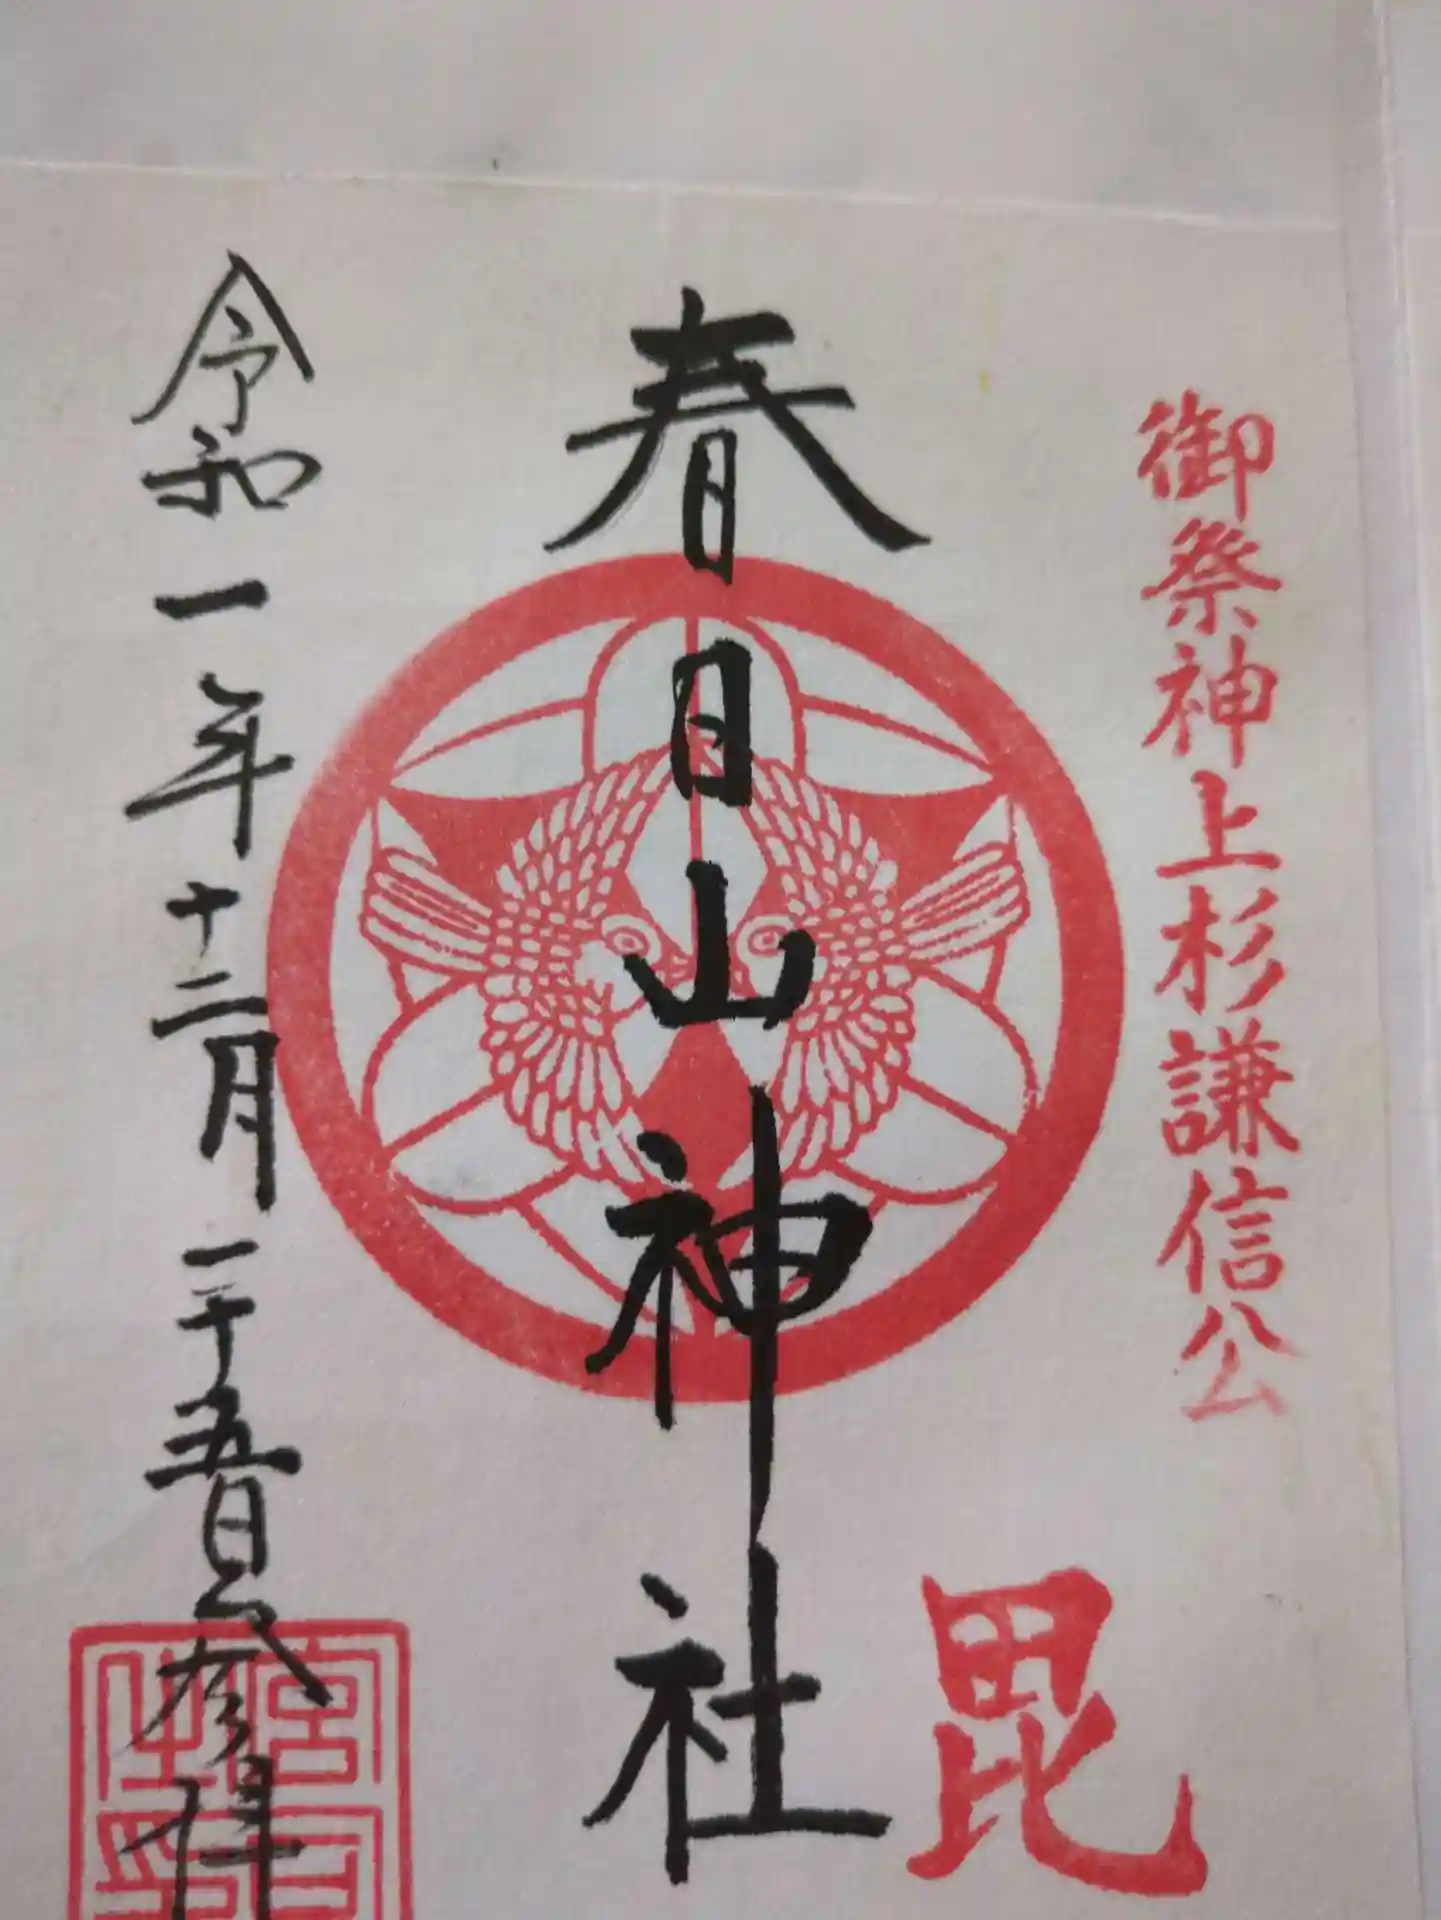 御祭神上杉謙信公
毘
春日山神社
令和一年十二月二十五日参拝
宮司
之印